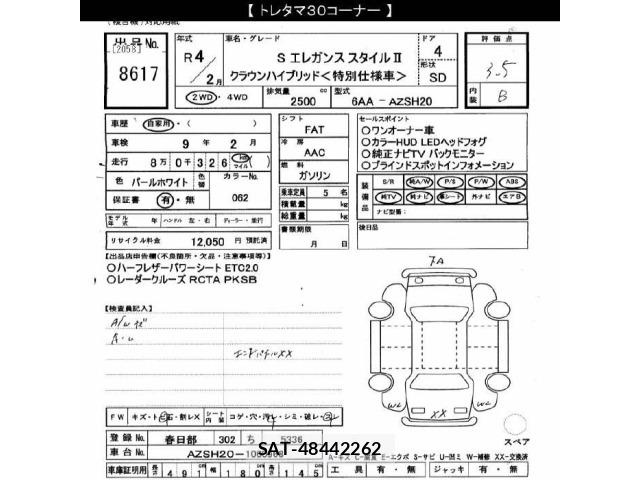 【 トレタマ30コーナー 】
出品No.
[2058]
8617
年式
R 4
2 月
車名・グレード
S エレガンス スタイルⅡ
クラウンハイブリッド＜特別仕様車＞
ドア
4
形状
SD
評価点
3.5
内装
B
2WD・4WD
排気量
2500 cc
型式
6AA - AZSH20
車歴 自家用・( )
車検 9 年 2 月
走行 8 万 0 千 3 2 6
色 パールホワイト
色替
カラーNo.
062
保証書 有・無
シフト
FAT
冷房
AAC
燃料
ガソリン
乗車定員 5 名
積載量 kg
総重量 kg
セールスポイント
○ワンオーナー車
○カラーHUD LEDヘッドフォグ
○純正ナビTV バックモニター
○ブラインドスポットインフォメーション
装備品
S/R 純A/W P/S P/W ABS
純TV 純ナビ 革シート 外ナビ エアB
ナビ型番:
モデル年式 年 ハンドル 左・右 ディーラー・並行
リサイクル料金 12,050 円 預託済
書類期限
月 日
後日品
【出品店申告欄(不良箇所・欠品・注意事項等)】
○ハーフレザーパワーシート ETC2.0
○レーダークルーズ RCTA PKSB
【検査員記入】
A/W
エンドパネルXX
7A
W2
W2
XX
スペア
FW キズ・ト石・割レX
シート内装
コゲ・穴・汚レ・シミ・破レ・スレ
登録No. 春日部 302 ち 5336
車台No. AZSH20-
SAT-48442262
A-キズ E-エクボ S-サビ U-凹ミ W-補修 XX-交換済
車庫証明用 長さ 4 9 1 幅 1 8 0 高さ 1 4 5
工具 有・無 ジャッキ 有・無